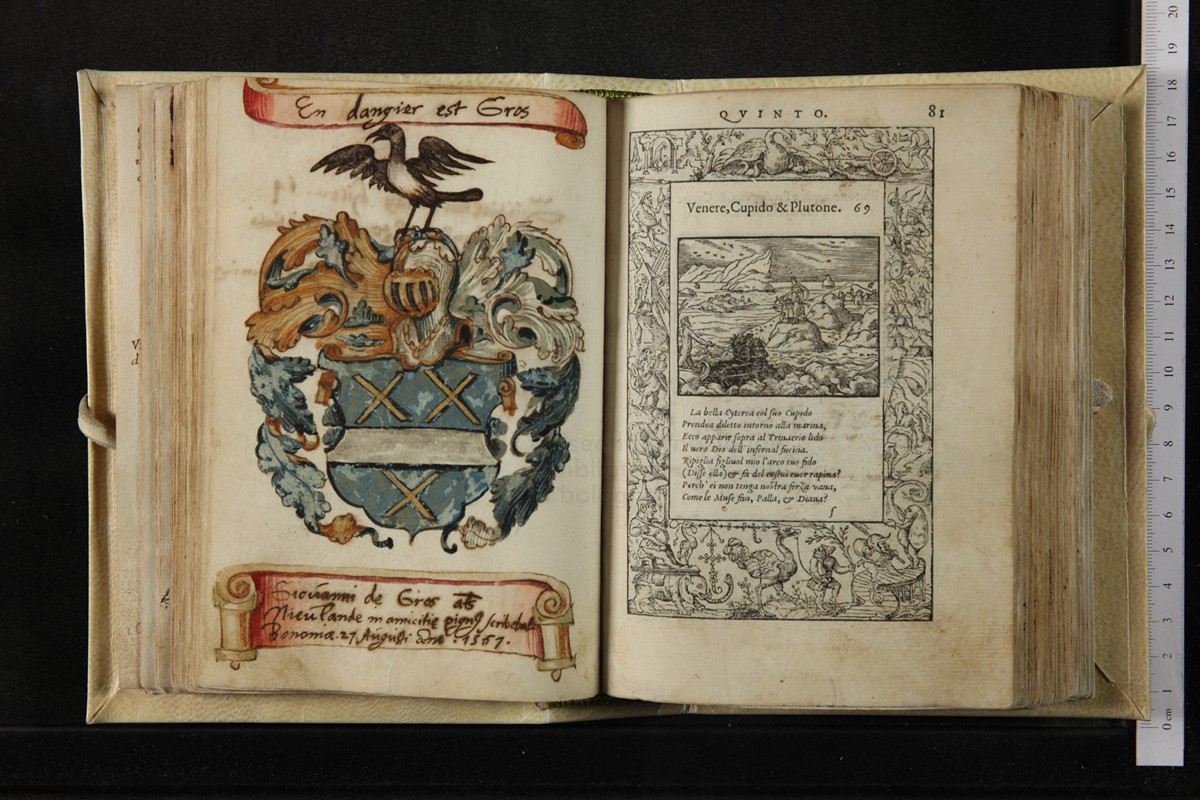 En dangier est Gros
Giovanni de Gros als
Nieulande in amicitie pigns scribebat
Bononiæ. 27 Augusti Anno 1567.
QVINTO. 81
Venere, Cupido & Plutone. 69
La bella Cyterea col suo Cupido
Prendea diletto intorno alla marina,
Ecco apparir sopra al Trinacrio lido
Il nero Dio dell' infernal fucina.
Ripiglia figliuol mio l'arco tuo fido
(Disse ella) & fà del costui cuor rapina?
Perch' ei non tenga nostra forza vana,
Come le Muse fan, Palla, & Diana?
f
20
19
18
17
16
15
14
13
12
11
10
9
8
7
6
5
4
3
2
1
0 cm